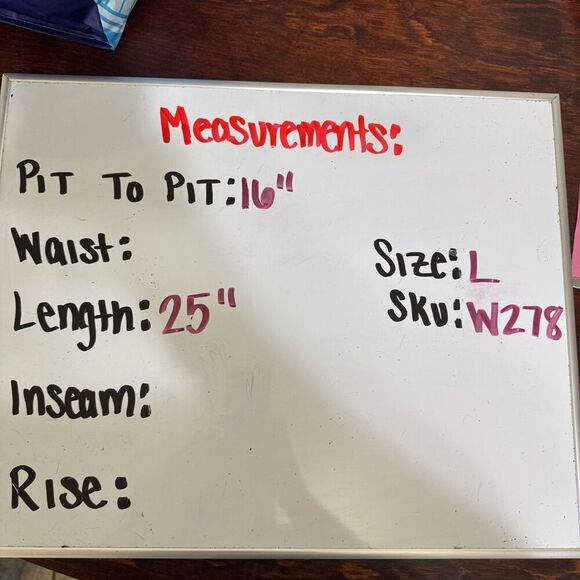 Measurements:
Pit To Pit: 16"
Waist:
Size: L
Length: 25"
Sku: W278
Inseam:
Rise: